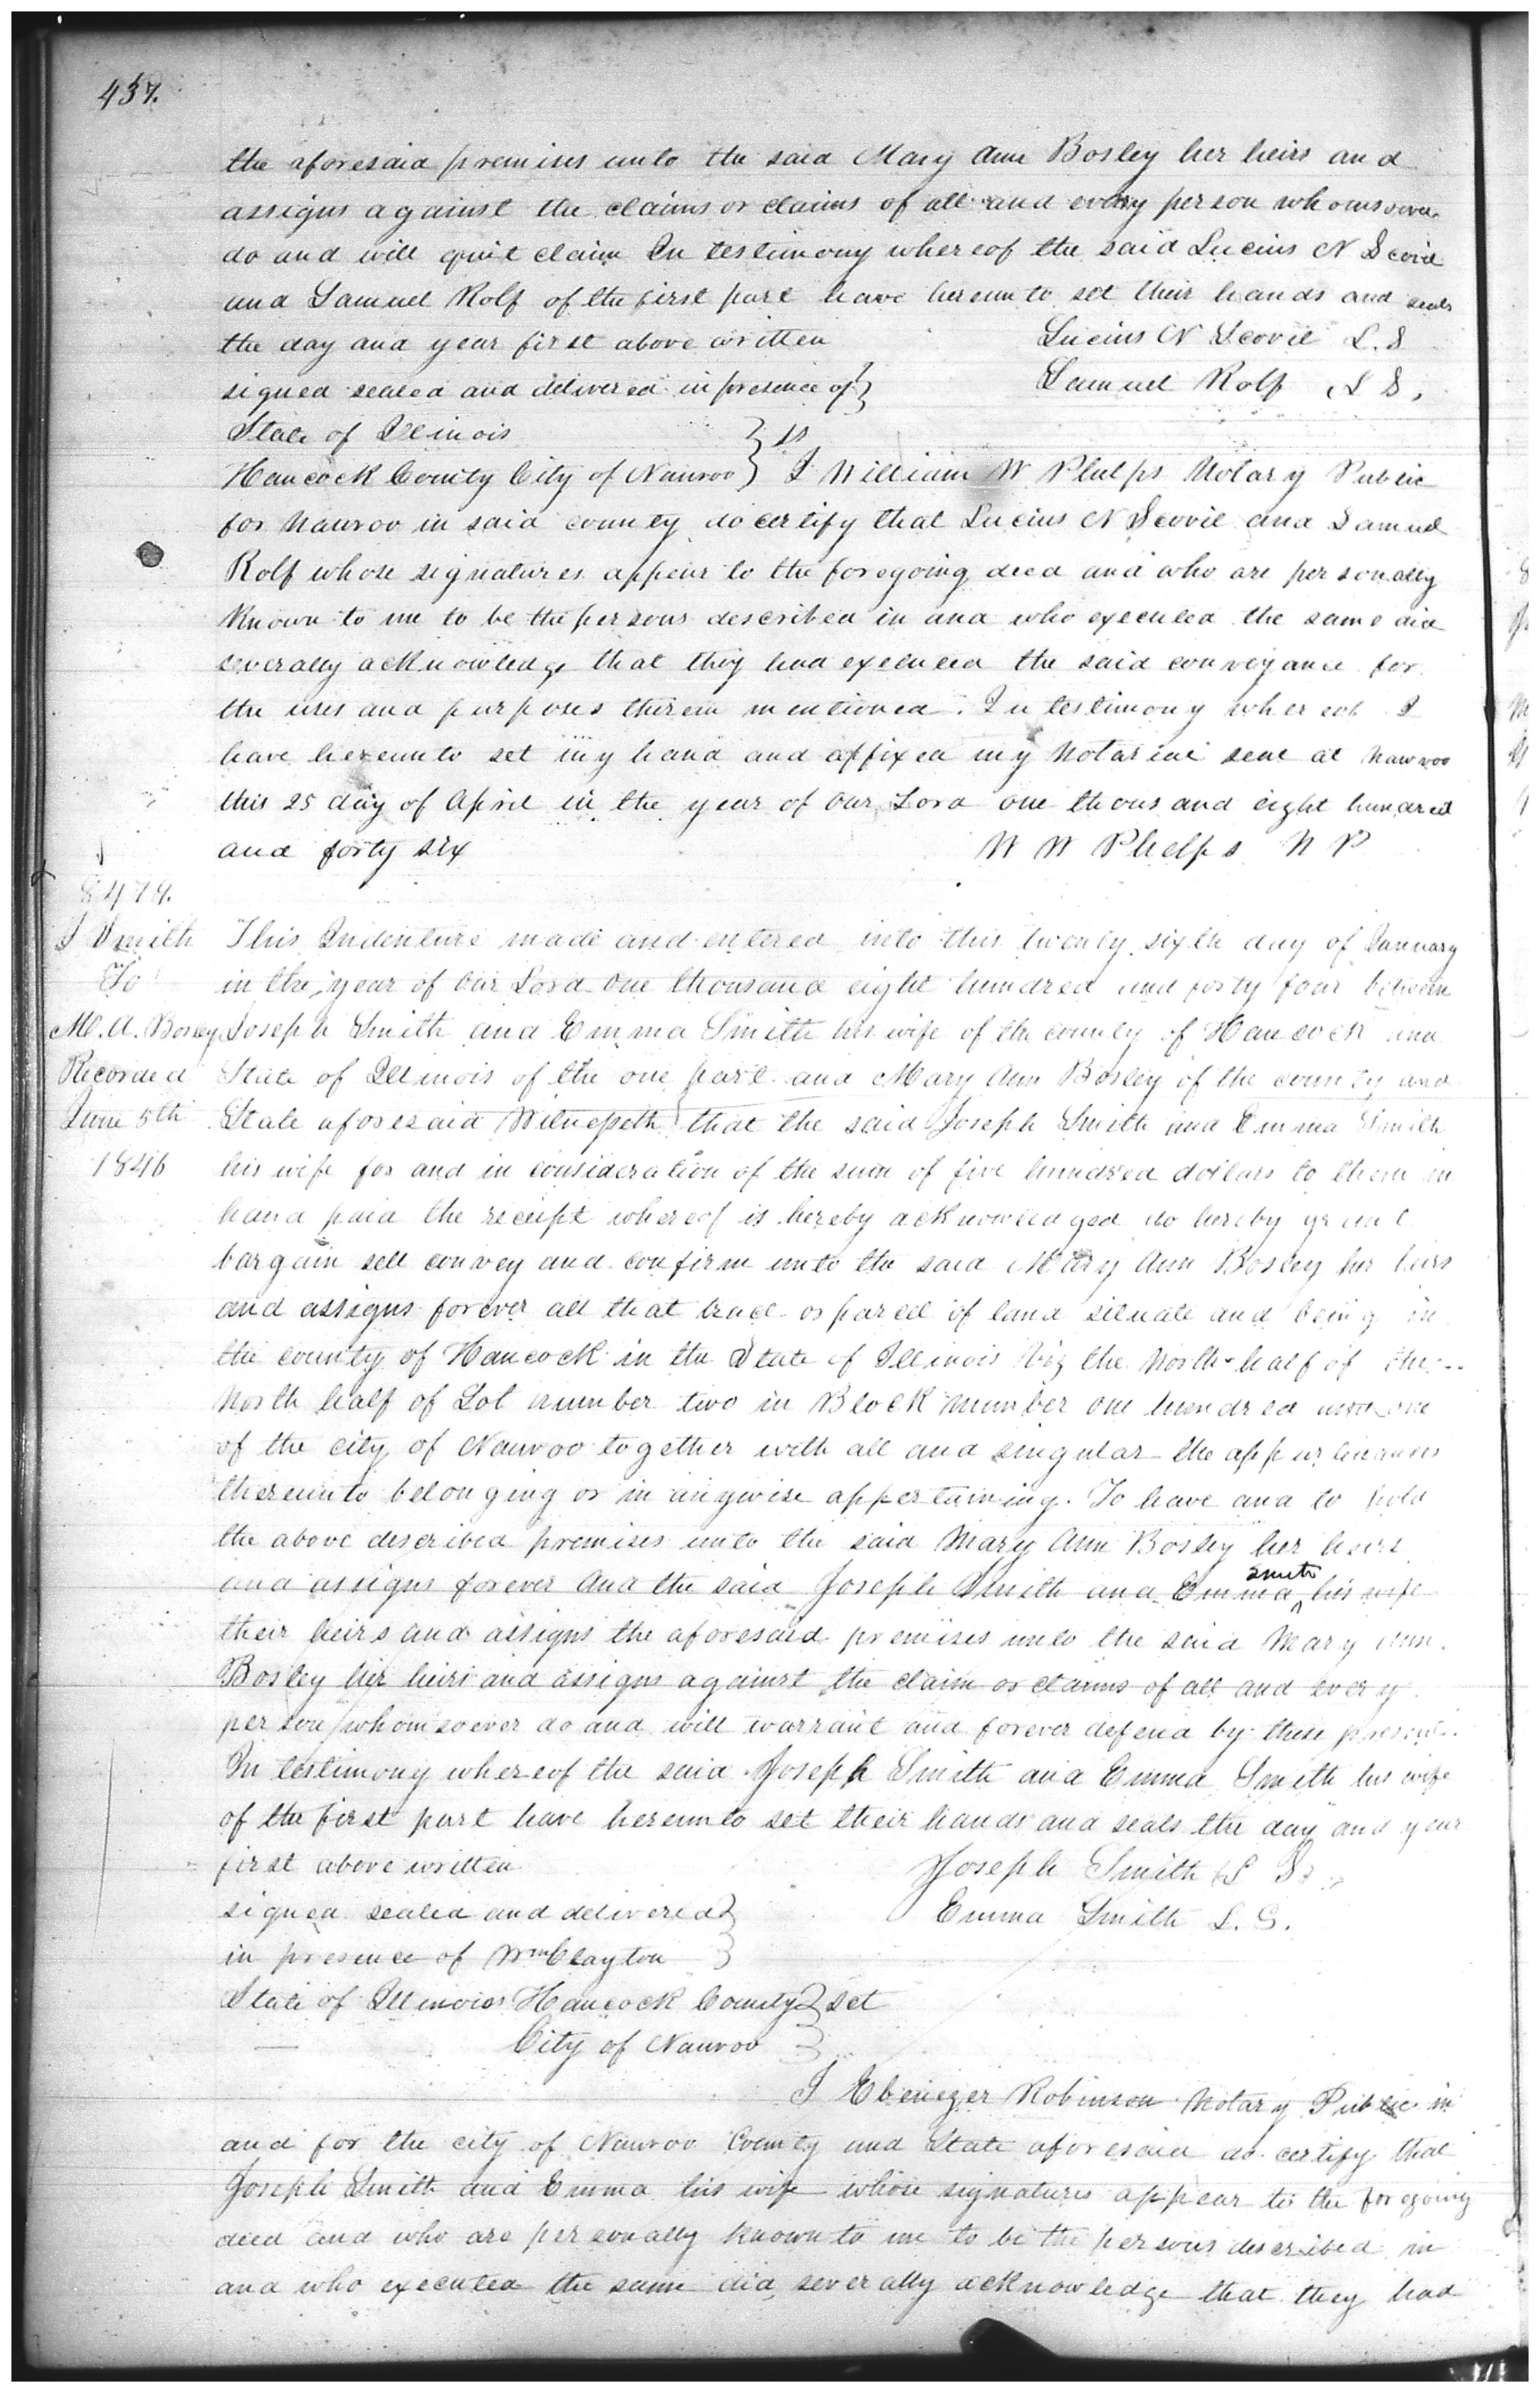 437.
the aforesaid premises unto the said Mary Ann Bosley her heirs and
assigns against the claims or claims of all and every person whomsoever
do and will quit claim In testimony whereof the said Lucius N Scovil
and Samuel Rolf of the first part have hereunto set their hands and seals
the day and year first above written Lucius N Scovil L.S
signed sealed and delivered in presence of } Samuel Rolf L S.
State of Illinois } ss
Hancock County City of Nauvoo } I William W Phelps Notary Public
for Nauvoo in said county do certify that Lucius N Scovil and Samuel
Rolf whose signatures appear to the foregoing deed and who are personally
known to me to be the persons described in and who executed the same did
severally acknowledge that they had executed the said conveyance for
the uses and purposes therein mentioned. In testimony whereof I
have hereunto set my hand and affixed my Notarial seal at Nauvoo
this 25 day of April in the year of our Lord one thousand eight hundred
and forty six W W Phelps N P
J Smith
To
M. A. Bosley
Recorded
June 5th
1846
This Indenture made and entered into this twenty sixth day of January
in the year of our Lord one thousand eight hundred and forty four between
Joseph Smith and Emma Smith his wife of the county of Hancock and
State of Illinois of the one part and Mary Ann Bosley of the county and
State aforesaid Witnesseth that the said Joseph Smith and Emma Smith
his wife for and in consideration of the sum of five hundred dollars to them in
hand paid the receipt whereof is hereby acknowledged do hereby grant
bargain sell convey and confirm unto the said Mary Ann Bosley her heirs
and assigns forever all that tract or parcel of land situate and being in
the county of Hancock in the State of Illinois Viz the North half of the
North half of Lot number two in Block number one hundred and one
of the city of Nauvoo together with all and singular the appurtenances
thereunto belonging or in anywise appertaining. To have and to hold
the above described premises unto the said Mary Ann Bosley her heirs
and assigns forever And the said Joseph Smith and Emma ^Smith his wife
their heirs and assigns the aforesaid premises unto the said Mary Ann
Bosley her heirs and assigns against the claim or claims of all and every
person whomsoever do and will warrant and forever defend by these presents
In testimony whereof the said Joseph Smith and Emma Smith his wife
of the first part have hereunto set their hands and seals the day and year
first above written Joseph Smith L S
signed sealed and delivered } Emma Smith L. S.
in presence of Wm Clayton }
State of Illinois Hancock County } sct
City of Nauvoo }
I Ebenezer Robinson Notary Public in
and for the city of Nauvoo County and State aforesaid do certify that
Joseph Smith and Emma his wife whose signatures appear to the foregoing
deed and who are personally known to me to be the persons described in
and who executed the same did severally acknowledge that they had